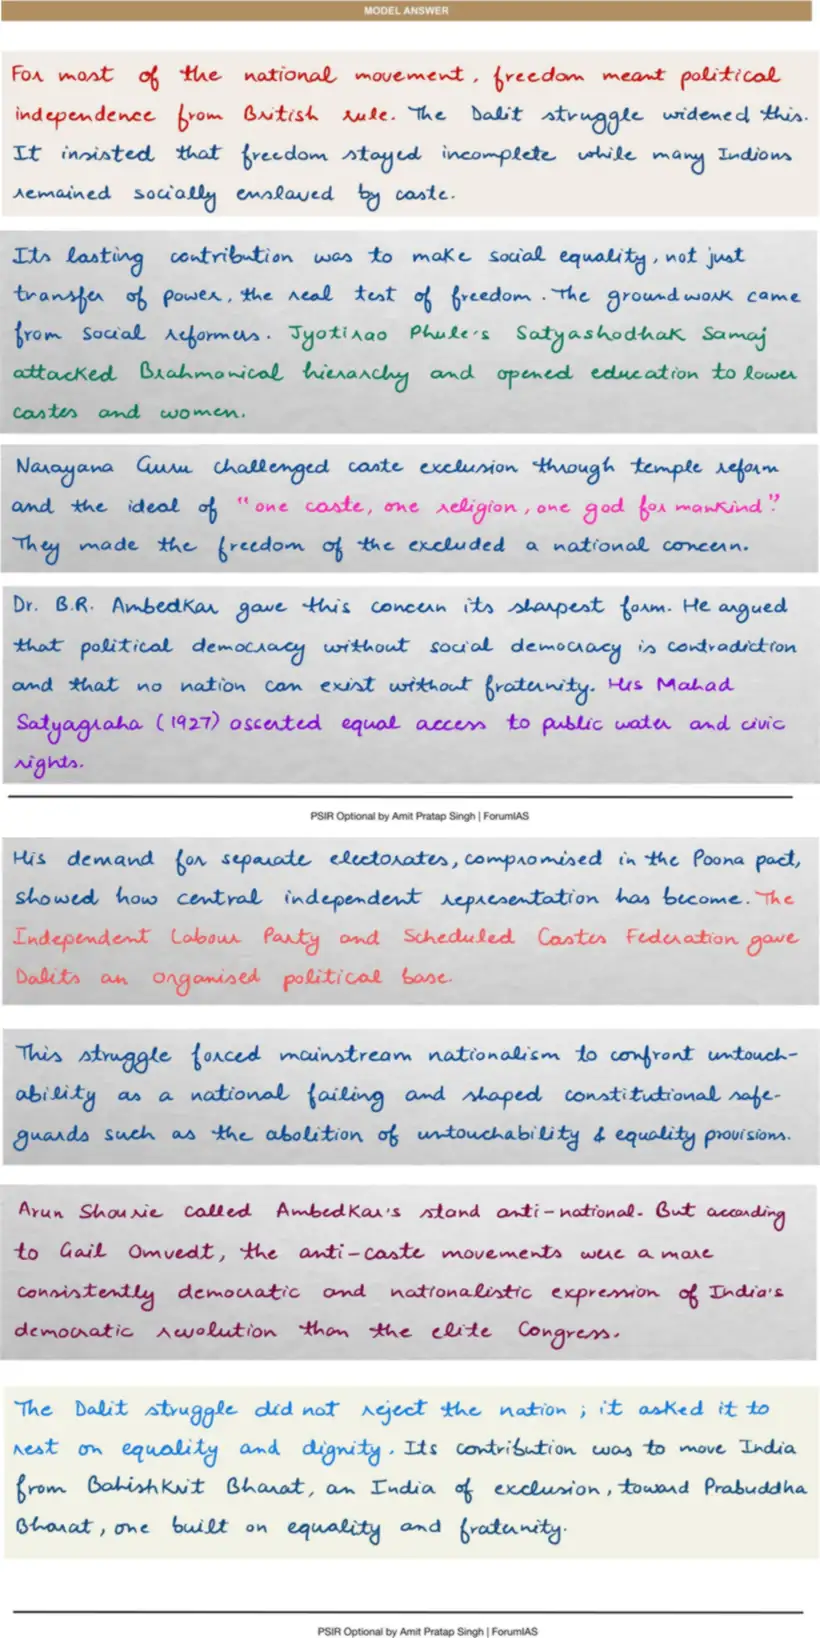 MODEL ANSWER
For most of the national movement, freedom meant political
independence from British rule. The Dalit struggle widened this.
It insisted that freedom stayed incomplete while many Indians
remained socially enslaved by caste.
Its lasting contribution was to make social equality, not just
transfer of power, the real test of freedom. The groundwork came
from social reformers. Jyotirao Phule's Satyashodhak Samaj
attacked Brahmanical hierarchy and opened education to lower
castes and women.
Narayana Guru challenged caste exclusion through temple reform
and the ideal of "one caste, one religion, one god for mankind".
They made the freedom of the excluded a national concern.
Dr. B.R. Ambedkar gave this concern its sharpest form. He argued
that political democracy without social democracy is contradiction
and that no nation can exist without fraternity. His Mahad
Satyagraha (1927) asserted equal access to public water and civic
rights.
PSIR Optional by Amit Pratap Singh | ForumIAS
His demand for separate electorates, compromised in the Poona pact,
showed how central independent representation has become. The
Independent Labour Party and Scheduled Castes Federation gave
Dalits an organised political base.
This struggle forced mainstream nationalism to confront untouch-
ability as a national failing and shaped constitutional safe-
guards such as the abolition of untouchability & equality provisions.
Arun Shourie called Ambedkar's stand anti-national. But according
to Gail Omvedt, the anti-caste movements were a more
consistently democratic and nationalistic expression of India's
democratic revolution than the elite Congress.
The Dalit struggle did not reject the nation; it asked it to
rest on equality and dignity. Its contribution was to move India
from Bahishkrit Bharat, an India of exclusion, toward Prabuddha
Bharat, one built on equality and fraternity.
PSIR Optional by Amit Pratap Singh | ForumIAS